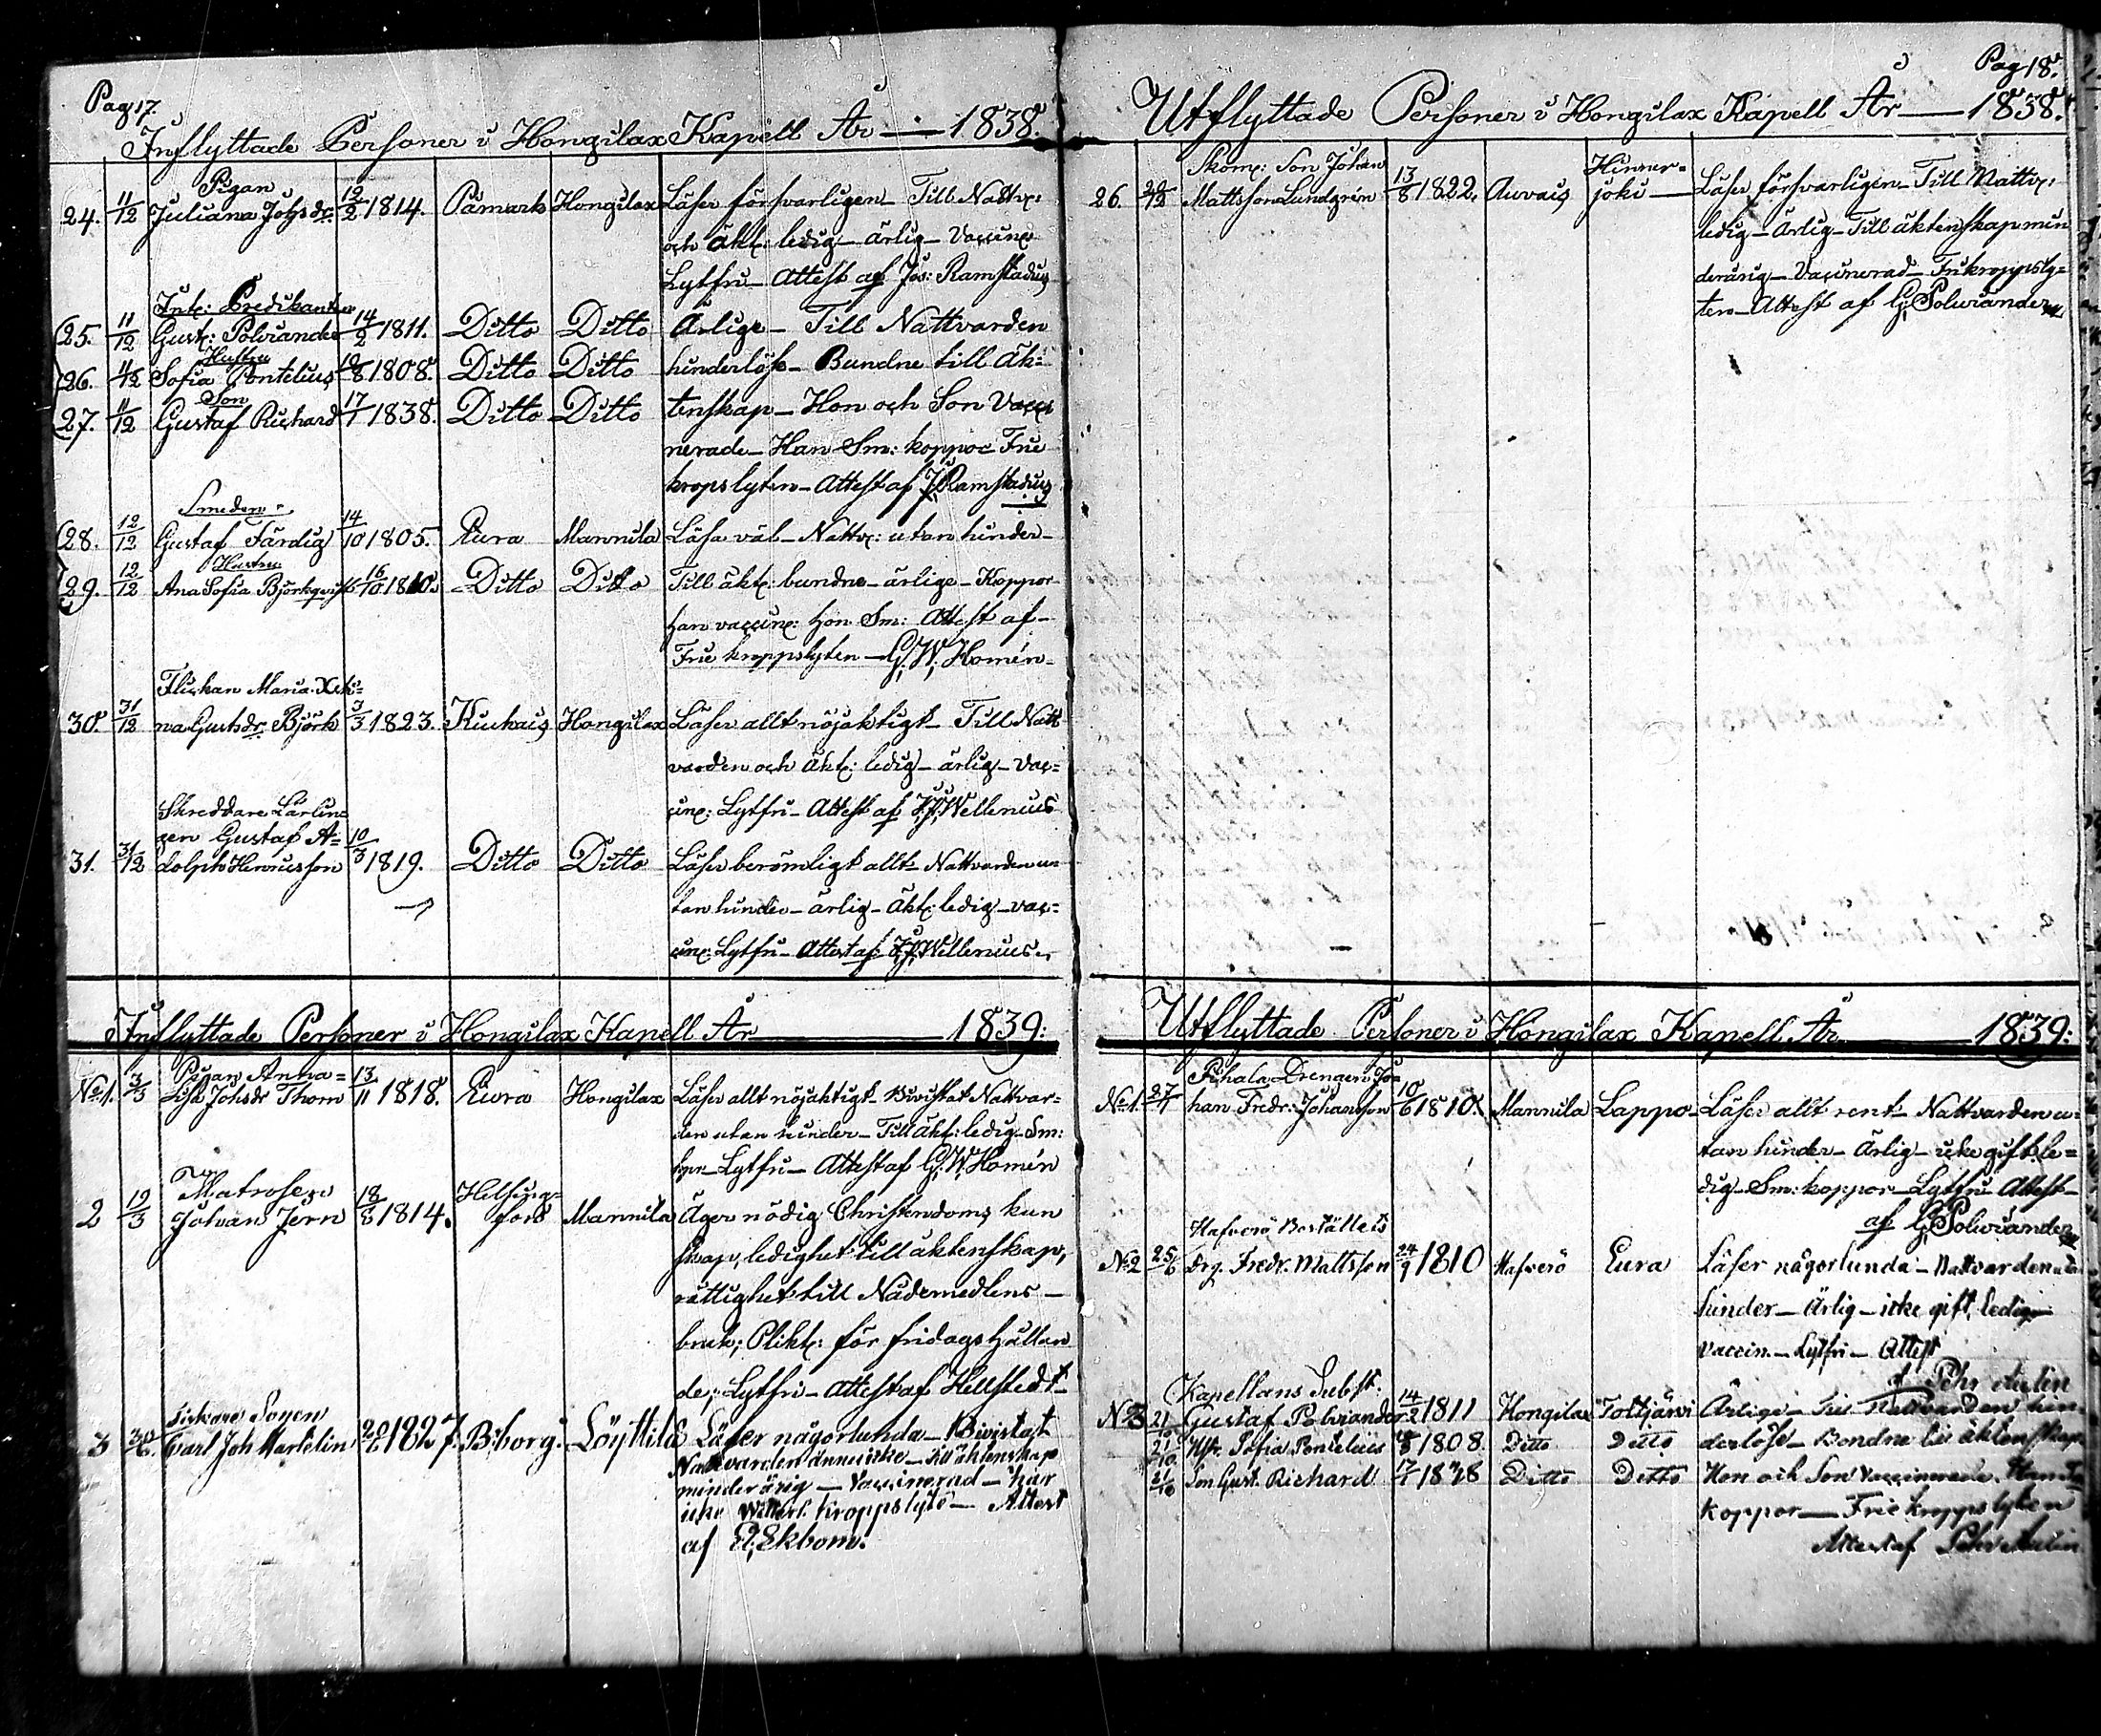 Pag 17.
Inflyttade Personer i Hongilax Kapell År — 1838.
Pigan
24. 11/12 Juliana Johsdr. 12/2 1814. Påmark Hongilax Läser försvarligen - Till Nattv:
och äkt: ledig - ärlig - Vaccine
Lytfri - Attest af Jos: Ramstadius
Int: Predikanten
25. 11/12 Gust: Polviander 14/2 1811. Ditto Ditto Ärlige - Till Nattvarden
Hustru
26. 11/12 Sofia Pontelius 1808. Ditto Ditto hinderlöse - Bundne till äk=
Son
27. 11/12 Gustaf Richard 17/1 1838. Ditto Ditto tenskap - Hon och Son Vacci
nerade - Han Sm: koppor Frie
kropslyten - Attest af J. Ramstadius
Smeden
28. 12/12 Gustaf Färdig 14/10 1805. Eura Mannila Läsa väl - Nattv: utan hinder -
Hustru
29. 12/12 Ana Sofia Björkqvist 16/10 1810. Ditto Ditto Till äkt: bundne - ärlige - Koppor
han vaccine: hon Sm: Attest af -
Frie kroppslyten - G. W. Homén -
Flickan Maria
30. 31/12 na Gustsdr. Björk 3/3 1823. Kiukais Hongilax Läser allt nöjaktigt - Till Natt
varden och äkt: ledig - ärlig - Vac=
cine: Lytfri - Attest af Wellenius
Skreddare Lärlin=
gen Gustaf A=
31. 31/12 dolph Henricsson 10/3 1819. Ditto Ditto Läser berömligt allt - Nattvarden u=
tan hinder - ärlig - äkt: ledig - vac=
cine: Lytfri - Attest af Wellenius
Inflyttade Personer i Hongilax Kapell År — 1839:
Pigan Anna=
No 1. 3/3 Lisa Johsdr Thorn 13/11 1818. Eura Hongilax Läser allt nöjaktigt - Bivistat Nattvar=
den utan hinder - Till äkt: ledig - Sm:
kopr - Lytfri - Attest af G. W. Homén
Matrosen Helsing=
2 19/3 Johan Jern 18/8 1814. fors Mannila Äger nödig Christendoms kun
skap, ledighet till äktenskap,
rättighet till Nådemedlens -
bruk; Plikt: för fridags hållan
de; Lytfri - Attest af Hellstedt -
Sonen
3 Carl Joh Martelin 1827. B:borg. Löyttilä Läser någorlunda - Bivistat
Nattvarden ännu icke - Till äktenskap
minderårig - Vaccinerad - har
icke kroppslyte - Attest
af Ekbom.
Pag 18.
Utflyttade Personer i Hongilax Kapell År — 1838.
Skom: Son Johan Hinner=
26. Mattsson Lundgrén 13/8 1822. Auvais joki — Läser försvarligen - Till Nattv:
ledig - Ärlig - Till äktenskap min
derårig - Vaccinerad - Fri kroppsly=
ten - Attest af G. Polviander
Utflyttade Personer i Hongilax Kapell År — 1839:
Pihala Drengen Jo=
No 1. 27/1 han Fredr: Johansson 10/6 1810. Mannila Lappo - Läser allt rent - Nattvarden u=
tan hinder - Ärlig - icke gift le=
dig - Sm: koppor - Lytfri - Attest -
af G. Polviander
Hafverö Boställets
No 2 25/6 drg. Fredr. Mattsson 24/9 1810 Hafverö Eura Läser någorlunda - Nattvarden utan
hinder - Ärlig - icke gift, ledig
Vaccin. - Lytfri - Attest
af Pehr Aulin
Kapellans Subst:
No 3 21/10 Gustaf Polviander 14/2 1811 Hongilax Toltjärvi Ärlige - Till Nattvarden hin
21/10 Hstr. Sofia Pontelius 1808. Ditto Ditto derlöse - Bundne till äktenskap
21/10 Son Gust. Richard 17/1 1838 Ditto Ditto Hon och Son Vaccinerade. Han Sm
koppor - Frie kroppslyten
Attest af Pehr Aulin